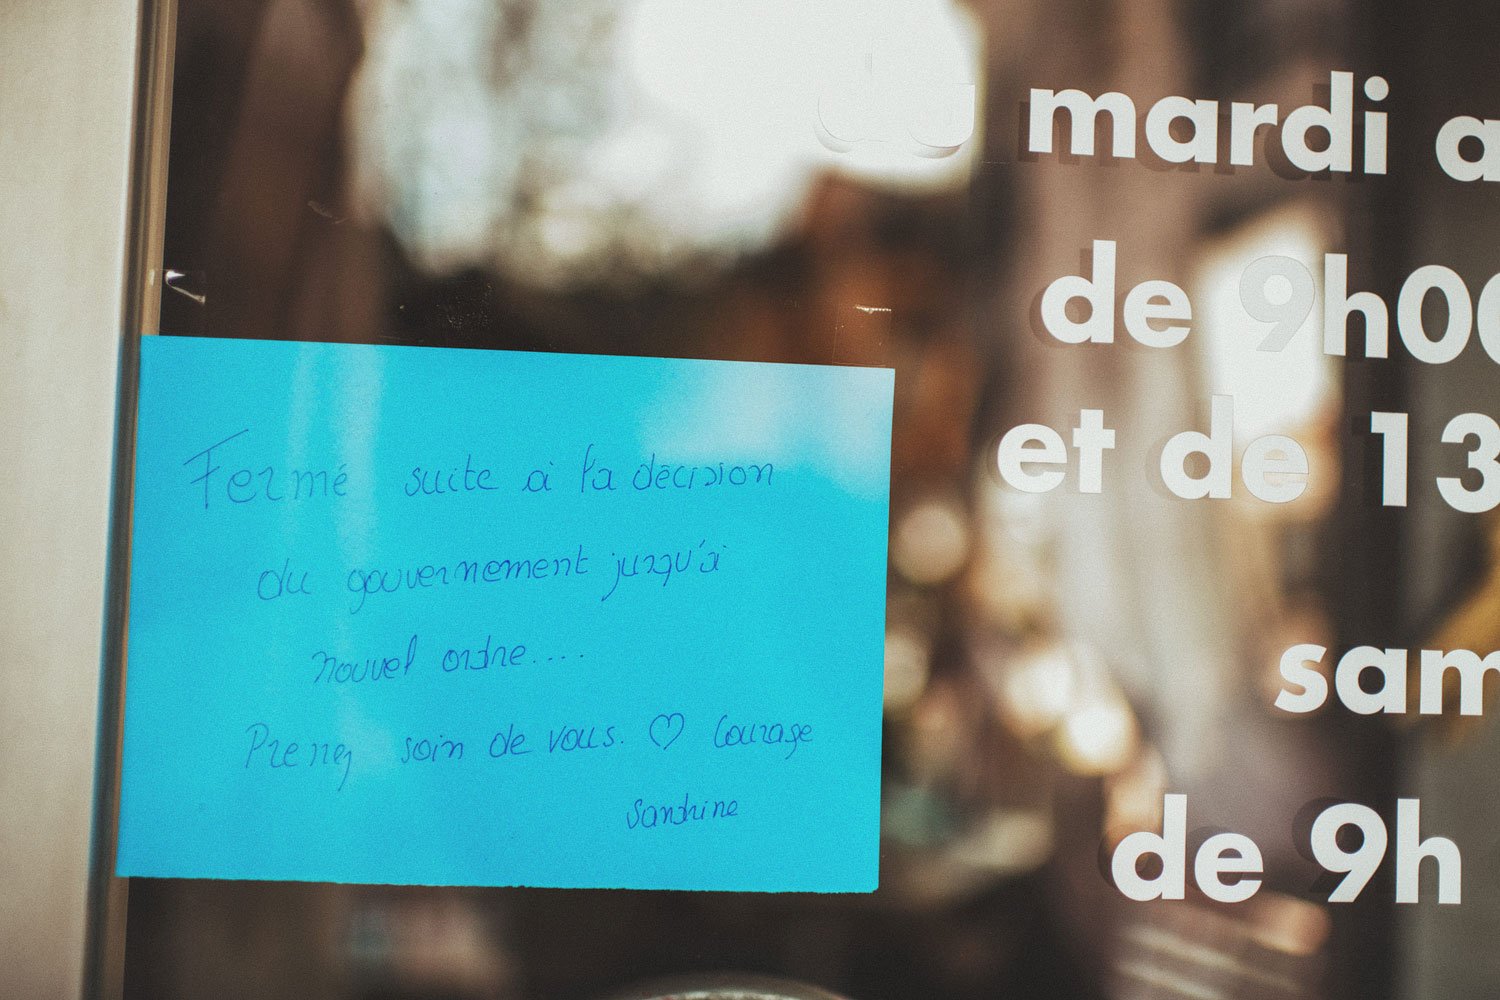 Fermé suite à la décision
du gouvernement jusqu'à
nouvel ordre....
Prenez soin de vous. ♡ Courage
Sandrine
mardi a
de 9h00
et de 13
sam
de 9h